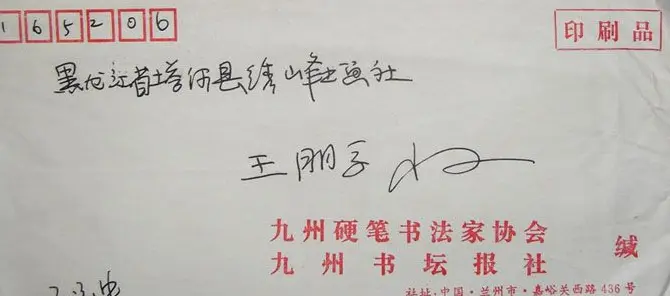 165206
印刷品
黑龙江省塔河县绣峰书画社
王朋子 收
九州硬笔书法家协会
九州书坛报社 缄
社址:中国·兰州市·嘉峪关西路436号